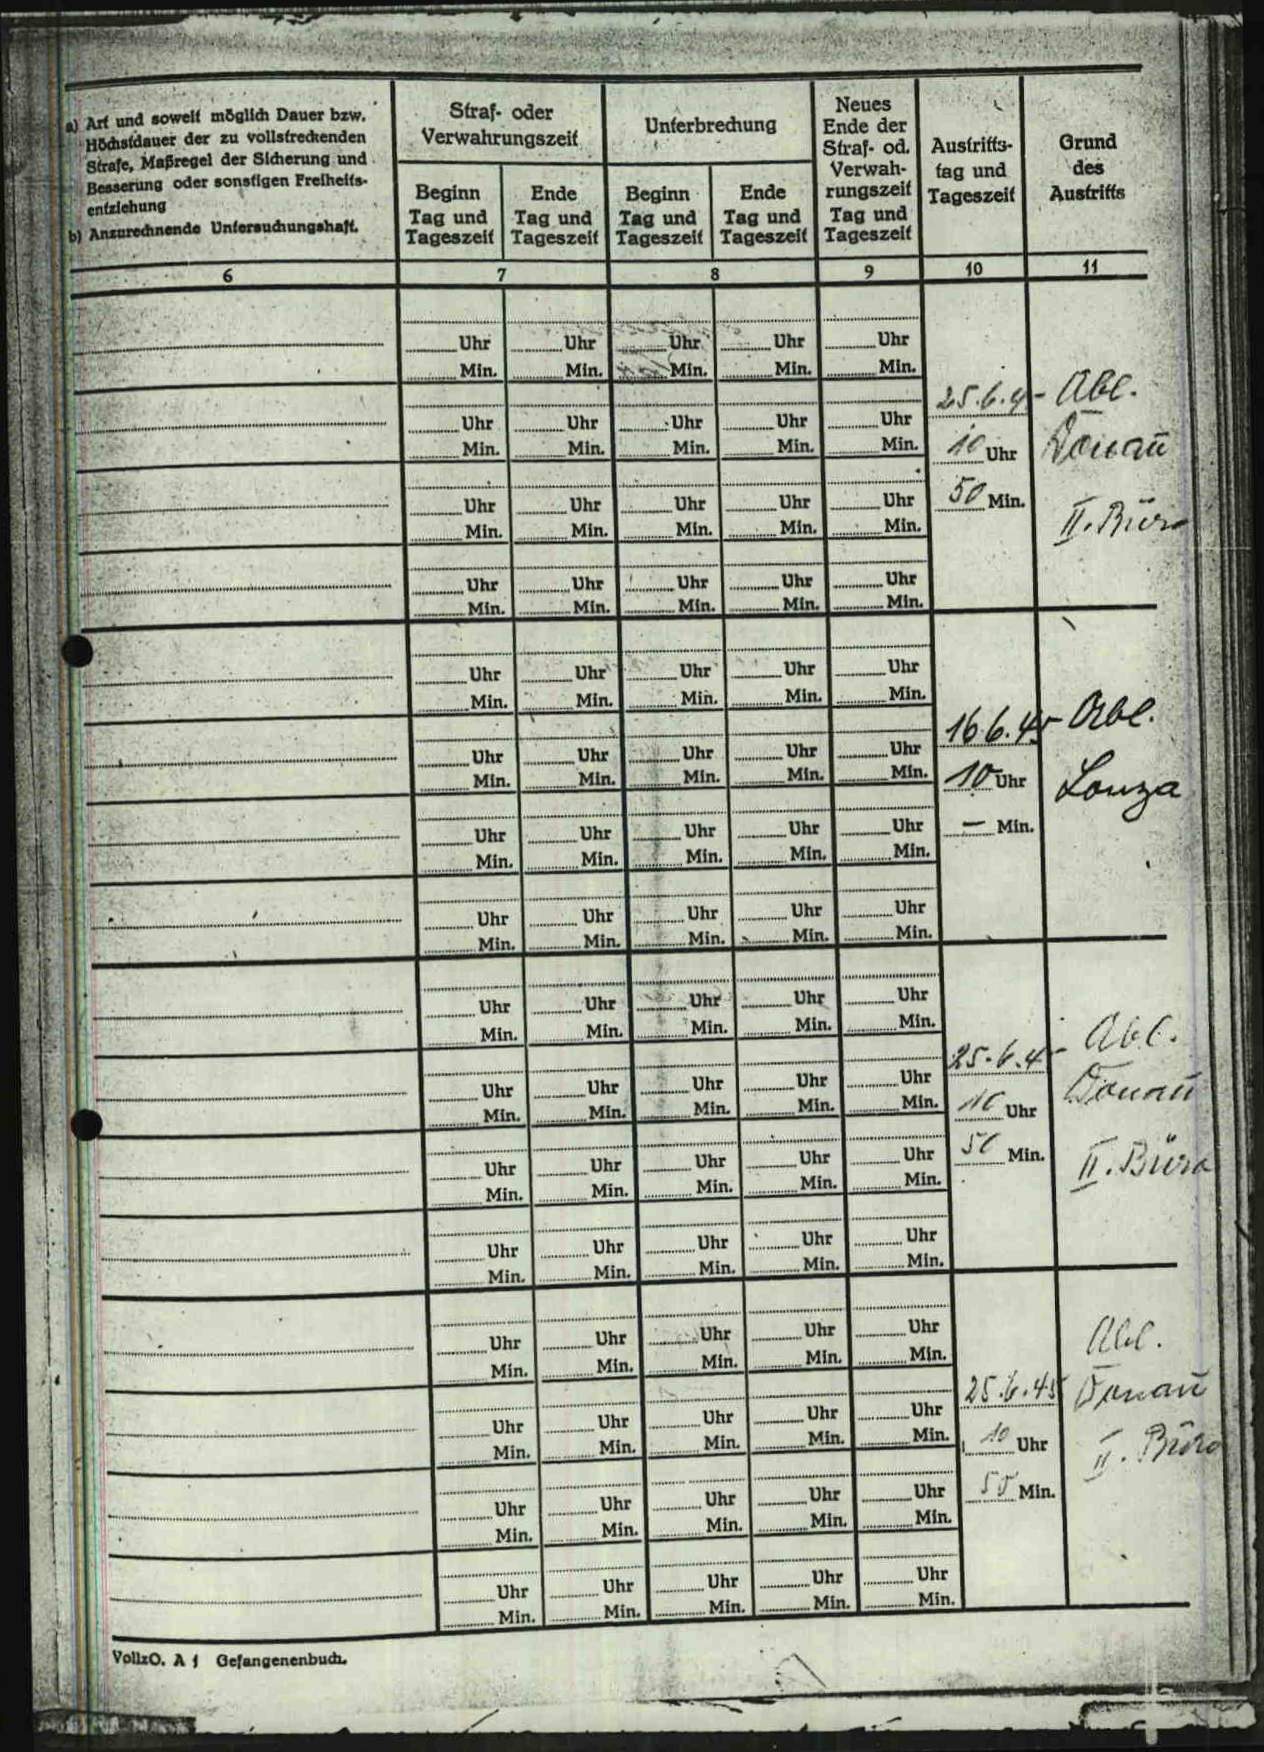 a) Art und soweit möglich Dauer bzw.
Höchstdauer der zu vollstreckenden
Strafe, Maßregel der Sicherung und
Besserung oder sonstigen Freiheits-
entziehung
b) Anzurechnende Untersuchungshaft.
Straf- oder
Verwahrungszeit
Beginn
Tag und
Tageszeit
Ende
Tag und
Tageszeit
Unterbrechung
Beginn
Tag und
Tageszeit
Ende
Tag und
Tageszeit
Neues
Ende der
Straf- od.
Verwah-
rungszeit
Tag und
Tageszeit
Austritts-
tag und
Tageszeit
Grund
des
Austritts
6 7 8 9 10 11
Uhr Uhr Uhr Uhr Uhr
Min. Min. Min. Min. Min.
25.6.4- Abl.
Uhr Uhr Uhr Uhr Uhr
Min. Min. Min. Min. Min.
10 Uhr Donau
Uhr Uhr Uhr Uhr Uhr
50 Min. II. Büro
Min. Min. Min. Min. Min.
Uhr Uhr Uhr Uhr Uhr
Min. Min. Min. Min. Min.
Uhr Uhr Uhr Uhr Uhr
Min. Min. Min. Min. Min.
16.6.45 Abl.
Uhr Uhr Uhr Uhr Uhr
Min. Min. Min. Min. Min.
10 Uhr Louza
Uhr Uhr Uhr Uhr Uhr
— Min.
Min. Min. Min. Min. Min.
Uhr Uhr Uhr Uhr Uhr
Min. Min. Min. Min. Min.
Uhr Uhr Uhr Uhr Uhr
Min. Min. Min. Min. Min.
25.6.4- Abl.
Uhr Uhr Uhr Uhr Uhr
Min. Min. Min. Min. Min.
10 Uhr Donau
Uhr Uhr Uhr Uhr Uhr
50 Min. II. Büro
Min. Min. Min. Min. Min.
Uhr Uhr Uhr Uhr Uhr
Min. Min. Min. Min. Min.
Uhr Uhr Uhr Uhr Uhr
Min. Min. Min. Min. Min.
Abl.
25.6.45 Donau
Uhr Uhr Uhr Uhr Uhr
Min. Min. Min. Min. Min.
10 Uhr II. Büro
Uhr Uhr Uhr Uhr Uhr
50 Min.
Min. Min. Min. Min. Min.
Uhr Uhr Uhr Uhr Uhr
Min. Min. Min. Min. Min.
VollzO. A 1 Gefangenenbuch.